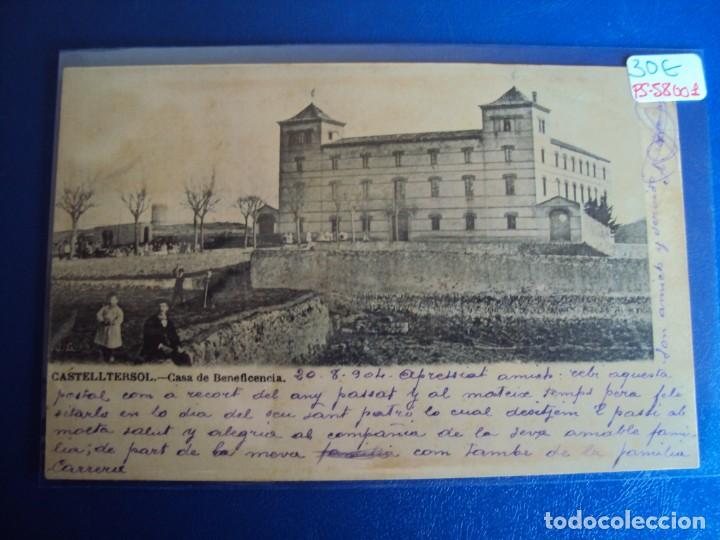 30€
PS-58001
CASTELLTERSOL.—Casa de Beneficencia. 20-8-904. Apressiat amich: rebi aquesta
postal com a recort del any passat y al mateix temps pera feli
sitarlo en lo dia del seu sant patró lo cual desitjem l passi ab
molta salut y alegria ab compañia de la seva amable fami-
lia; de part de la meva familia com tambe de la familia
Carrera
son amich y servidor
todocoleccion
todocoleccion.net